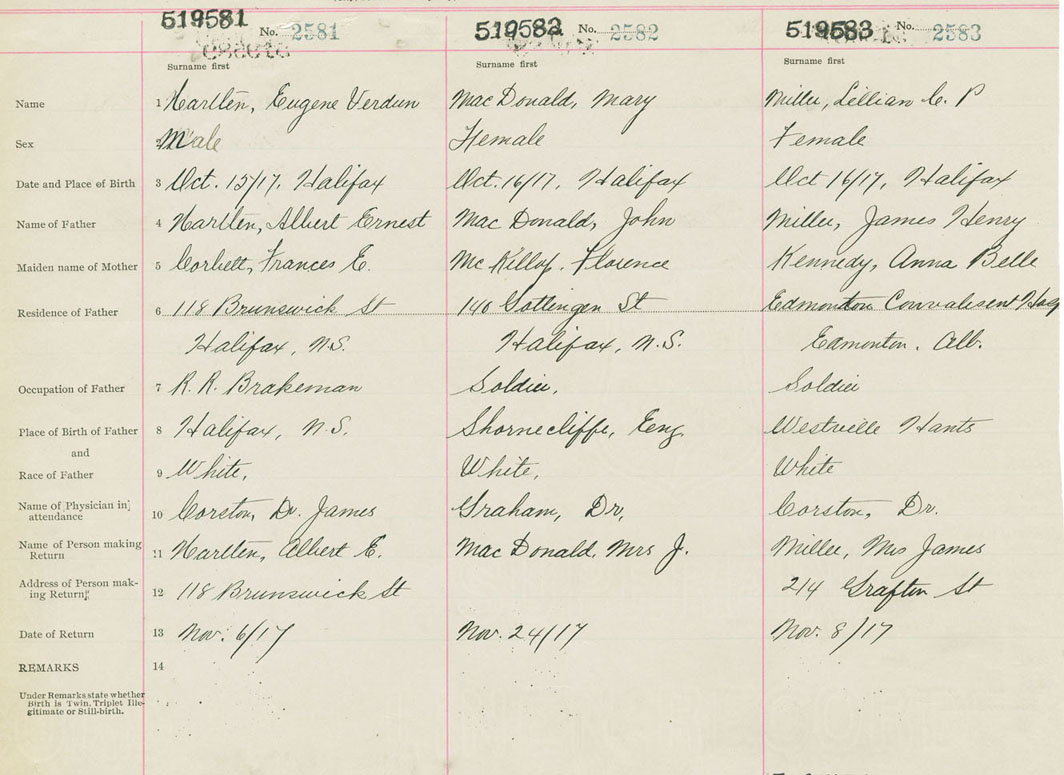 519581 No. 2581 519582 No. 2582 519583 No. 2583
Surname first Surname first Surname first
Name 1 Hartlen, Eugene Verdun Mac Donald, Mary Miller, Lillian C. P
Sex 2 Male Female Female
Date and Place of Birth 3 Oct. 15/17, Halifax Oct. 16/17, Halifax Oct 16/17, Halifax
Name of Father 4 Hartlen, Albert Ernest Mac Donald, John Miller, James Henry
Maiden name of Mother 5 Corbett, Frances E. Mc Killop, Florence Kennedy, Anna Belle
Residence of Father 6 118 Brunswick St 140 Gottingen St Edmonton Convalisent Hosp
Halifax, N.S. Halifax, N.S. Edmonton, Alb.
Occupation of Father 7 R. R. Brakeman Soldier, Soldier
Place of Birth of Father 8 Halifax, N.S. Shornecliffe, Eng. Westville Hants
and
Race of Father 9 White, White, White
Name of Physician in attendance 10 Corston, Dr. James Graham, Dr, Corston, Dr.
Name of Person making Return 11 Hartlen, Albert E. Mac Donald, Mrs J. Miller, Mrs James
Address of Person making Return 12 118 Brunswick St 214 Grafton St
Date of Return 13 Nov. 6/17 Nov. 24/17 Nov. 8/17
REMARKS 14
Under Remarks state whether
Birth is Twin, Triplet Ille-
gitimate or Still-birth.